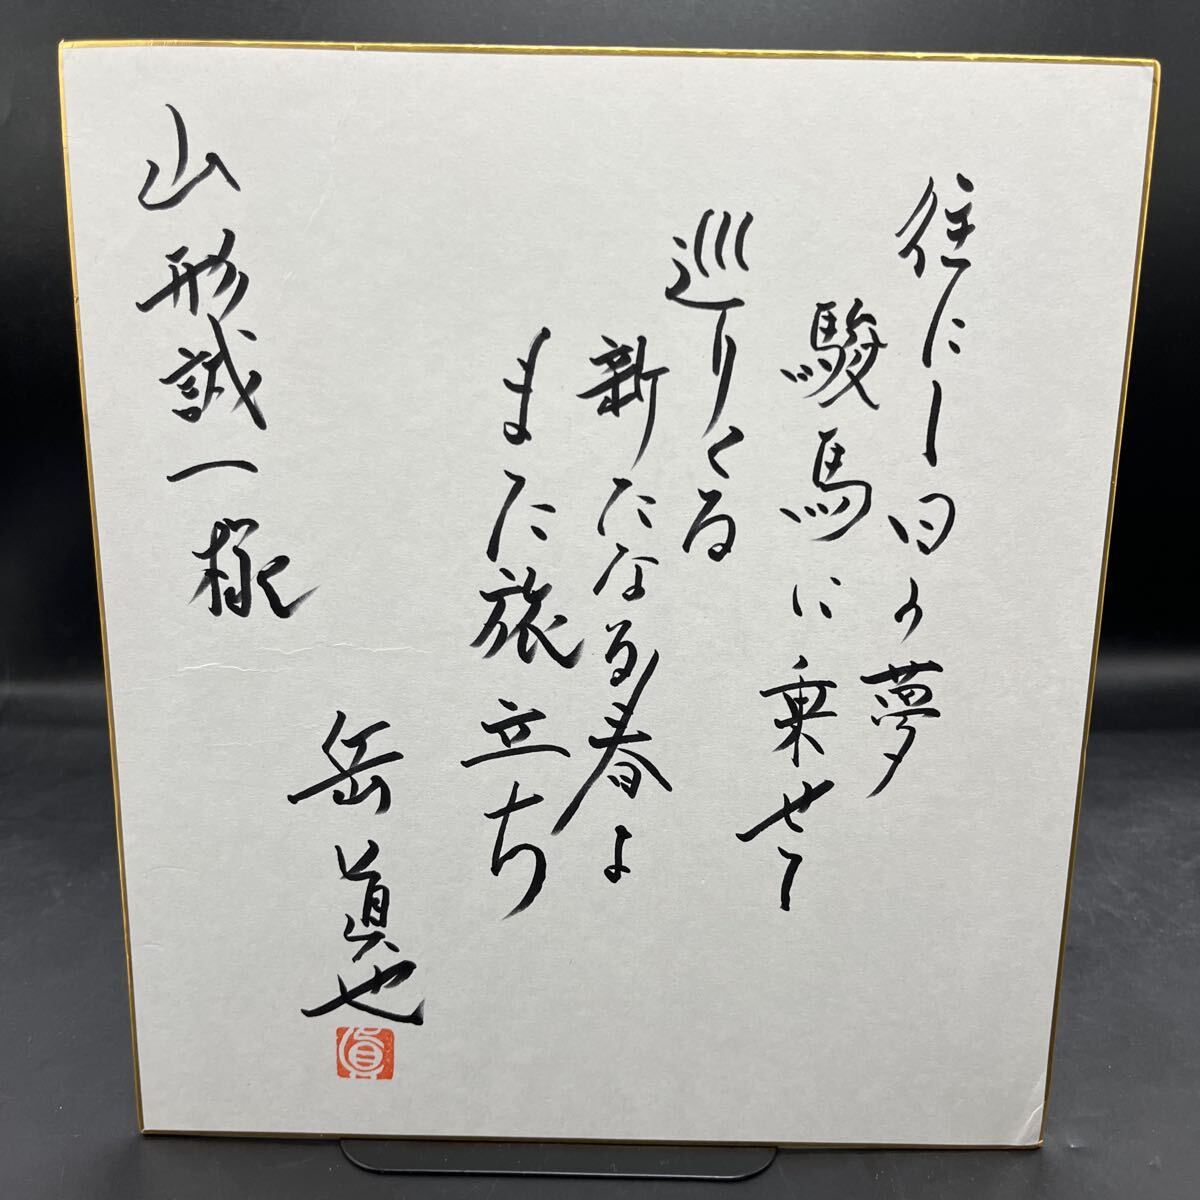 往にし日の夢
駿馬に乗せて
巡りくる
新たなる春よ
また旅立ち
山形誠一様
岳真也
眞